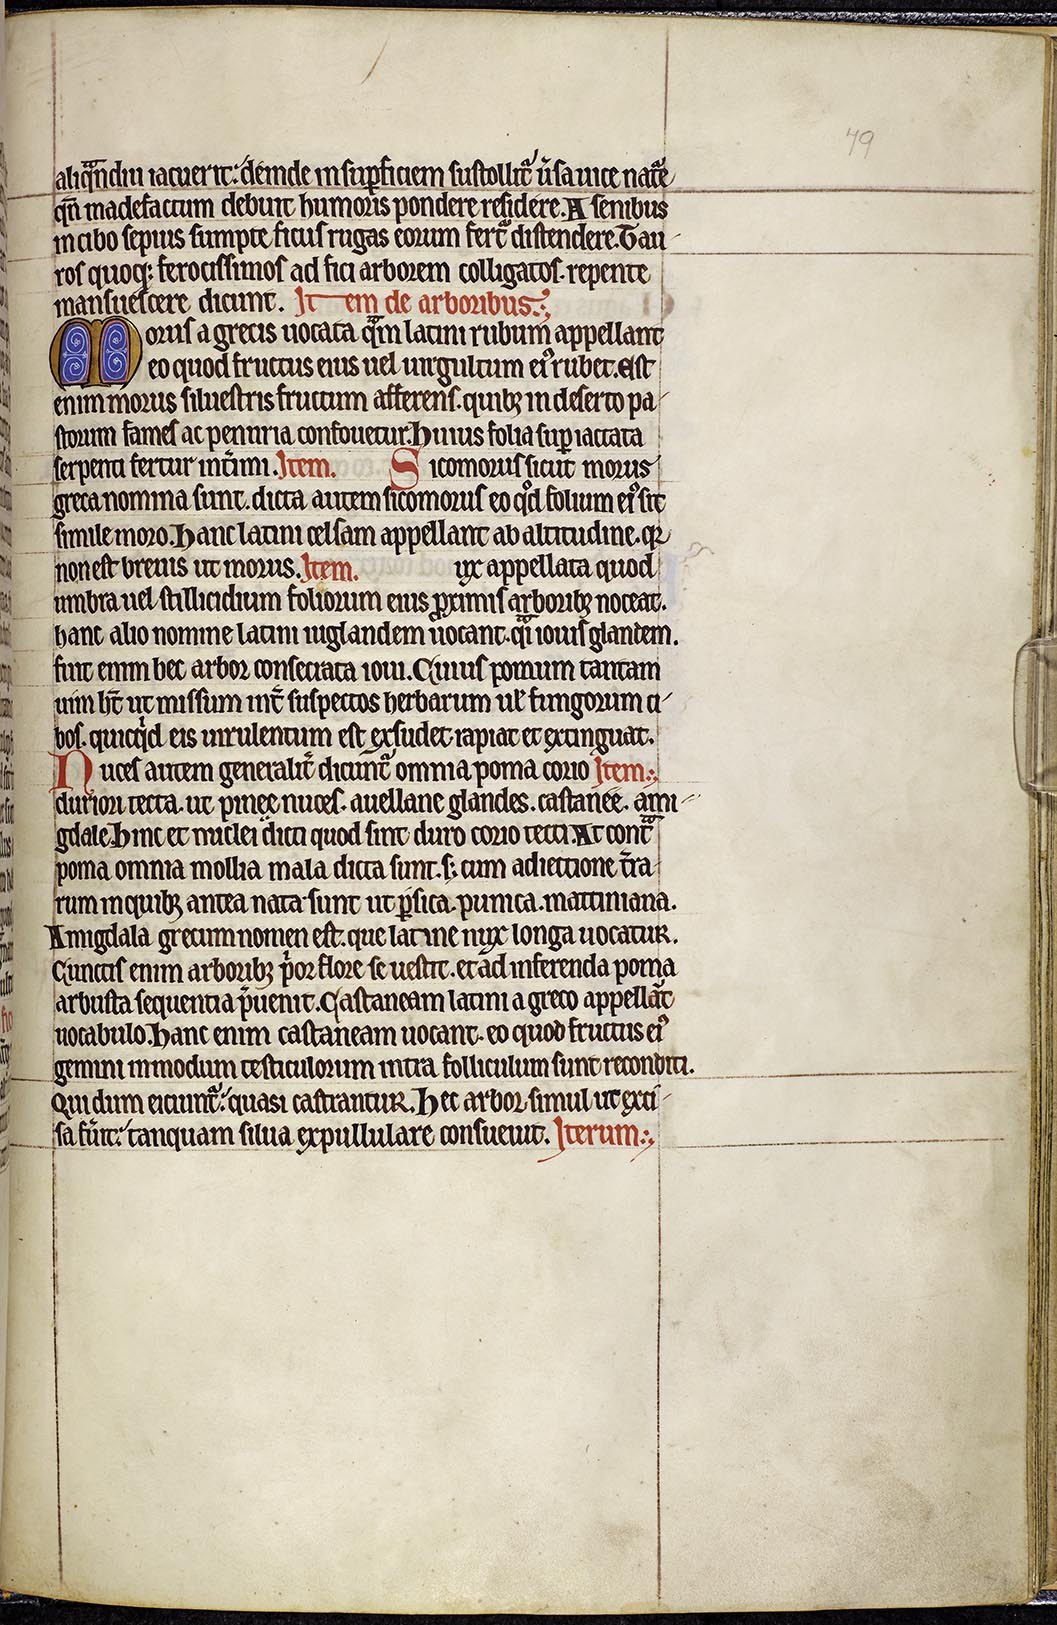 79
aliq̄ndiu iacuerit: deinde in suꝑficiem sustollit᷑ ũsa uice nat᷑e
qn̄ madefactum debuit humoris pondere residere. A senibus
in cibo sepius sumpte ficus rugas eorum fert᷑ distendere. Tau
ros quoq; ferocissimos ad fici arborem colligatos. repente
mansuescere dicunt. Item de arboribus.
Morus a grecis uocata q̄m latini rubum appellant
eo quod fructus eius uel uirgultum eiꝰ rubet. Est
enim morus siluestris fructum afferens. quibꝫ in deserto pa
storum fames ac penuria confouetur. Huius folia suꝑ iactata
serpenti fertur int̃imi. Item. Sicomorus sicut morus
greca nomina sunt. dicta autem sicomorus eo qͦd folium eiꝰ sit
simile moro. Hanc latini celsam appellant ab altitudine. qꝛ
non est breuis ut morus. Item. ux appellata quod
umbra uel stillicidium foliorum eius ꝓximis arboribꝫ noceat.
hanc alio nomine latini iuglandem uocant. qͣi iouis glandem.
fuit enim hec arbor consecrata ioui. Cuius pomum tantam
uim ht̄ ut missum int̃ suspectos herbarum ul̃ fungorum ci
bos. quicqͥd eis uirulentum est exsudet rapiat et extinguat.
Nuces autem generalit̃ dicunt᷑ omnia poma corio Item.
duriori tecta. ut pinee nuces. auellane glandes. castanee. ami
gdale. Hinc et nuclei dicti quod sint duro corio tecti. At contᷓ
poma omnia mollia mala dicta sunt. s; cum adiectione t̃ra
rum in quibꝫ antea nata sunt ut ꝑsica. punica. mattiniana.
Amigdala grecum nomen est. que latine nux longa uocatur.
Cunctis enim arboribꝫ pͥor flore se uestit. et ad inferenda poma
arbusta sequentia p̃uenit. Castaneam latini a greco appellāt
uocabulo. Hanc enim castaneam uocant. eo quod fructus eiꝰ
gemini in modum testiculorum intra folliculum sunt reconditi.
Qui dum eiciunt᷑: quasi castrantur. Hec arbor simul ut exci
sa fu̇it: tanquam silua expullulare consueuit. Iterum.